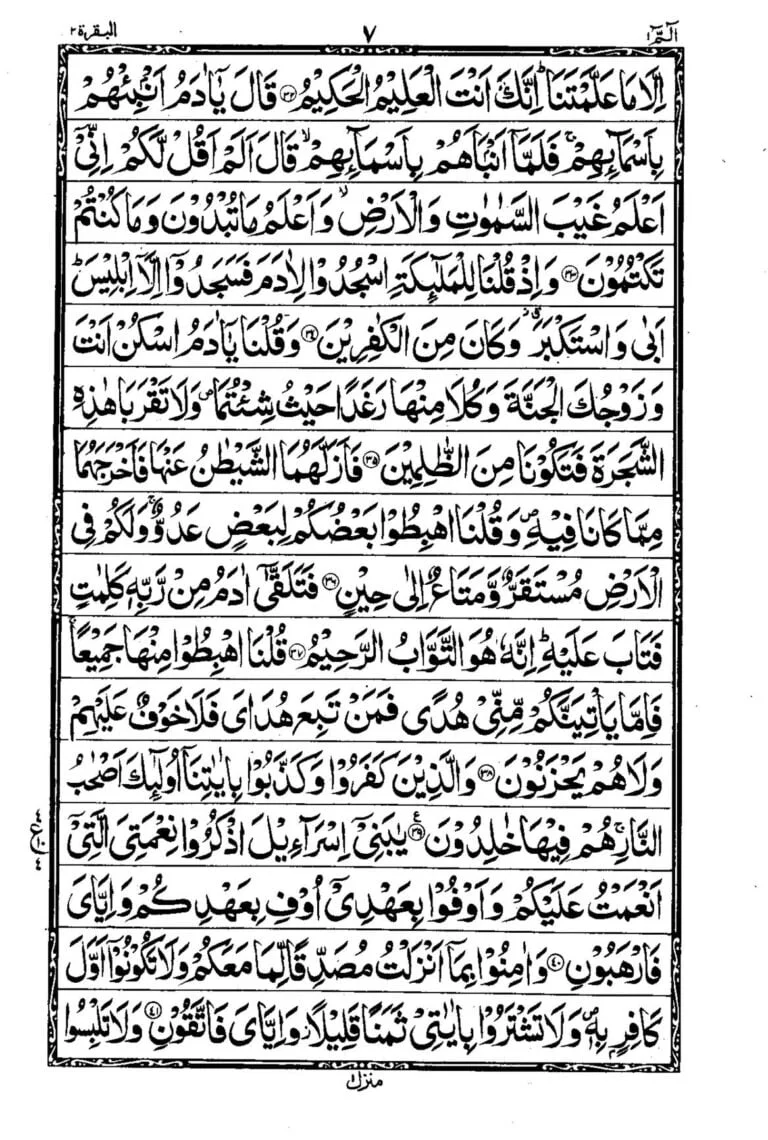 الٓمّٓ ١ ٧ البقرة ٢
اِلَّا مَا عَلَّمْتَنَا ؕ اِنَّكَ اَنْتَ الْعَلِيْمُ الْحَكِيْمُ ﴿۳۲﴾ قَالَ يٰۤاٰدَمُ اَنْۢبِئْهُمْ
بِاَسْمَآئِهِمْ ۚ فَلَمَّاۤ اَنْۢبَاَهُمْ بِاَسْمَآئِهِمْ ۙ قَالَ اَلَمْ اَقُلْ لَّكُمْ اِنِّیْۤ
اَعْلَمُ غَيْبَ السَّمٰوٰتِ وَالْاَرْضِ ۙ وَاَعْلَمُ مَا تُبْدُوْنَ وَمَا كُنْتُمْ
تَكْتُمُوْنَ ﴿۳۳﴾ وَاِذْ قُلْنَا لِلْمَلٰٓئِكَةِ اسْجُدُوْا لِاٰدَمَ فَسَجَدُوْۤا اِلَّاۤ اِبْلِيْسَ ؕ
اَبٰی وَاسْتَكْبَرَ ٭۫ وَكَانَ مِنَ الْكٰفِرِيْنَ ﴿۳۴﴾ وَقُلْنَا يٰۤاٰدَمُ اسْكُنْ اَنْتَ
وَزَوْجُكَ الْجَنَّةَ وَكُلَا مِنْهَا رَغَدًا حَيْثُ شِئْتُمَا ۪ وَلَا تَقْرَبَا هٰذِهِ
الشَّجَرَةَ فَتَكُوْنَا مِنَ الظّٰلِمِيْنَ ﴿۳۵﴾ فَاَزَلَّهُمَا الشَّيْطٰنُ عَنْهَا فَاَخْرَجَهُمَا
مِمَّا كَانَا فِيْهِ ۪ وَقُلْنَا اهْبِطُوْا بَعْضُكُمْ لِبَعْضٍ عَدُوٌّ ۚ وَلَكُمْ فِی
الْاَرْضِ مُسْتَقَرٌّ وَّمَتَاعٌ اِلٰی حِيْنٍ ﴿۳۶﴾ فَتَلَقّٰۤی اٰدَمُ مِنْ رَّبِّهٖ كَلِمٰتٍ
فَتَابَ عَلَيْهِ ؕ اِنَّهٗ هُوَ التَّوَّابُ الرَّحِيْمُ ﴿۳۷﴾ قُلْنَا اهْبِطُوْا مِنْهَا جَمِيْعًا ۚ
فَاِمَّا يَاْتِيَنَّكُمْ مِّنِّیْ هُدًی فَمَنْ تَبِعَ هُدَایَ فَلَا خَوْفٌ عَلَيْهِمْ
وَلَا هُمْ يَحْزَنُوْنَ ﴿۳۸﴾ وَالَّذِيْنَ كَفَرُوْا وَكَذَّبُوْا بِاٰيٰتِنَاۤ اُولٰٓئِكَ اَصْحٰبُ
النَّارِ ۚ هُمْ فِيْهَا خٰلِدُوْنَ ﴿۳۹﴾ يٰبَنِیْۤ اِسْرَآءِيْلَ اذْكُرُوْا نِعْمَتِیَ الَّتِیْۤ
اَنْعَمْتُ عَلَيْكُمْ وَاَوْفُوْا بِعَهْدِیْۤ اُوْفِ بِعَهْدِكُمْ وَاِيَّایَ
فَارْهَبُوْنِ ﴿۴۰﴾ وَاٰمِنُوْا بِمَاۤ اَنْزَلْتُ مُصَدِّقًا لِّمَا مَعَكُمْ وَلَا تَكُوْنُوْۤا اَوَّلَ
كَافِرٍۭ بِهٖ ۪ وَلَا تَشْتَرُوْا بِاٰيٰتِیْ ثَمَنًا قَلِيْلًا ۫ وَاِيَّایَ فَاتَّقُوْنِ ﴿۴۱﴾ وَلَا تَلْبِسُوا
منزل ١